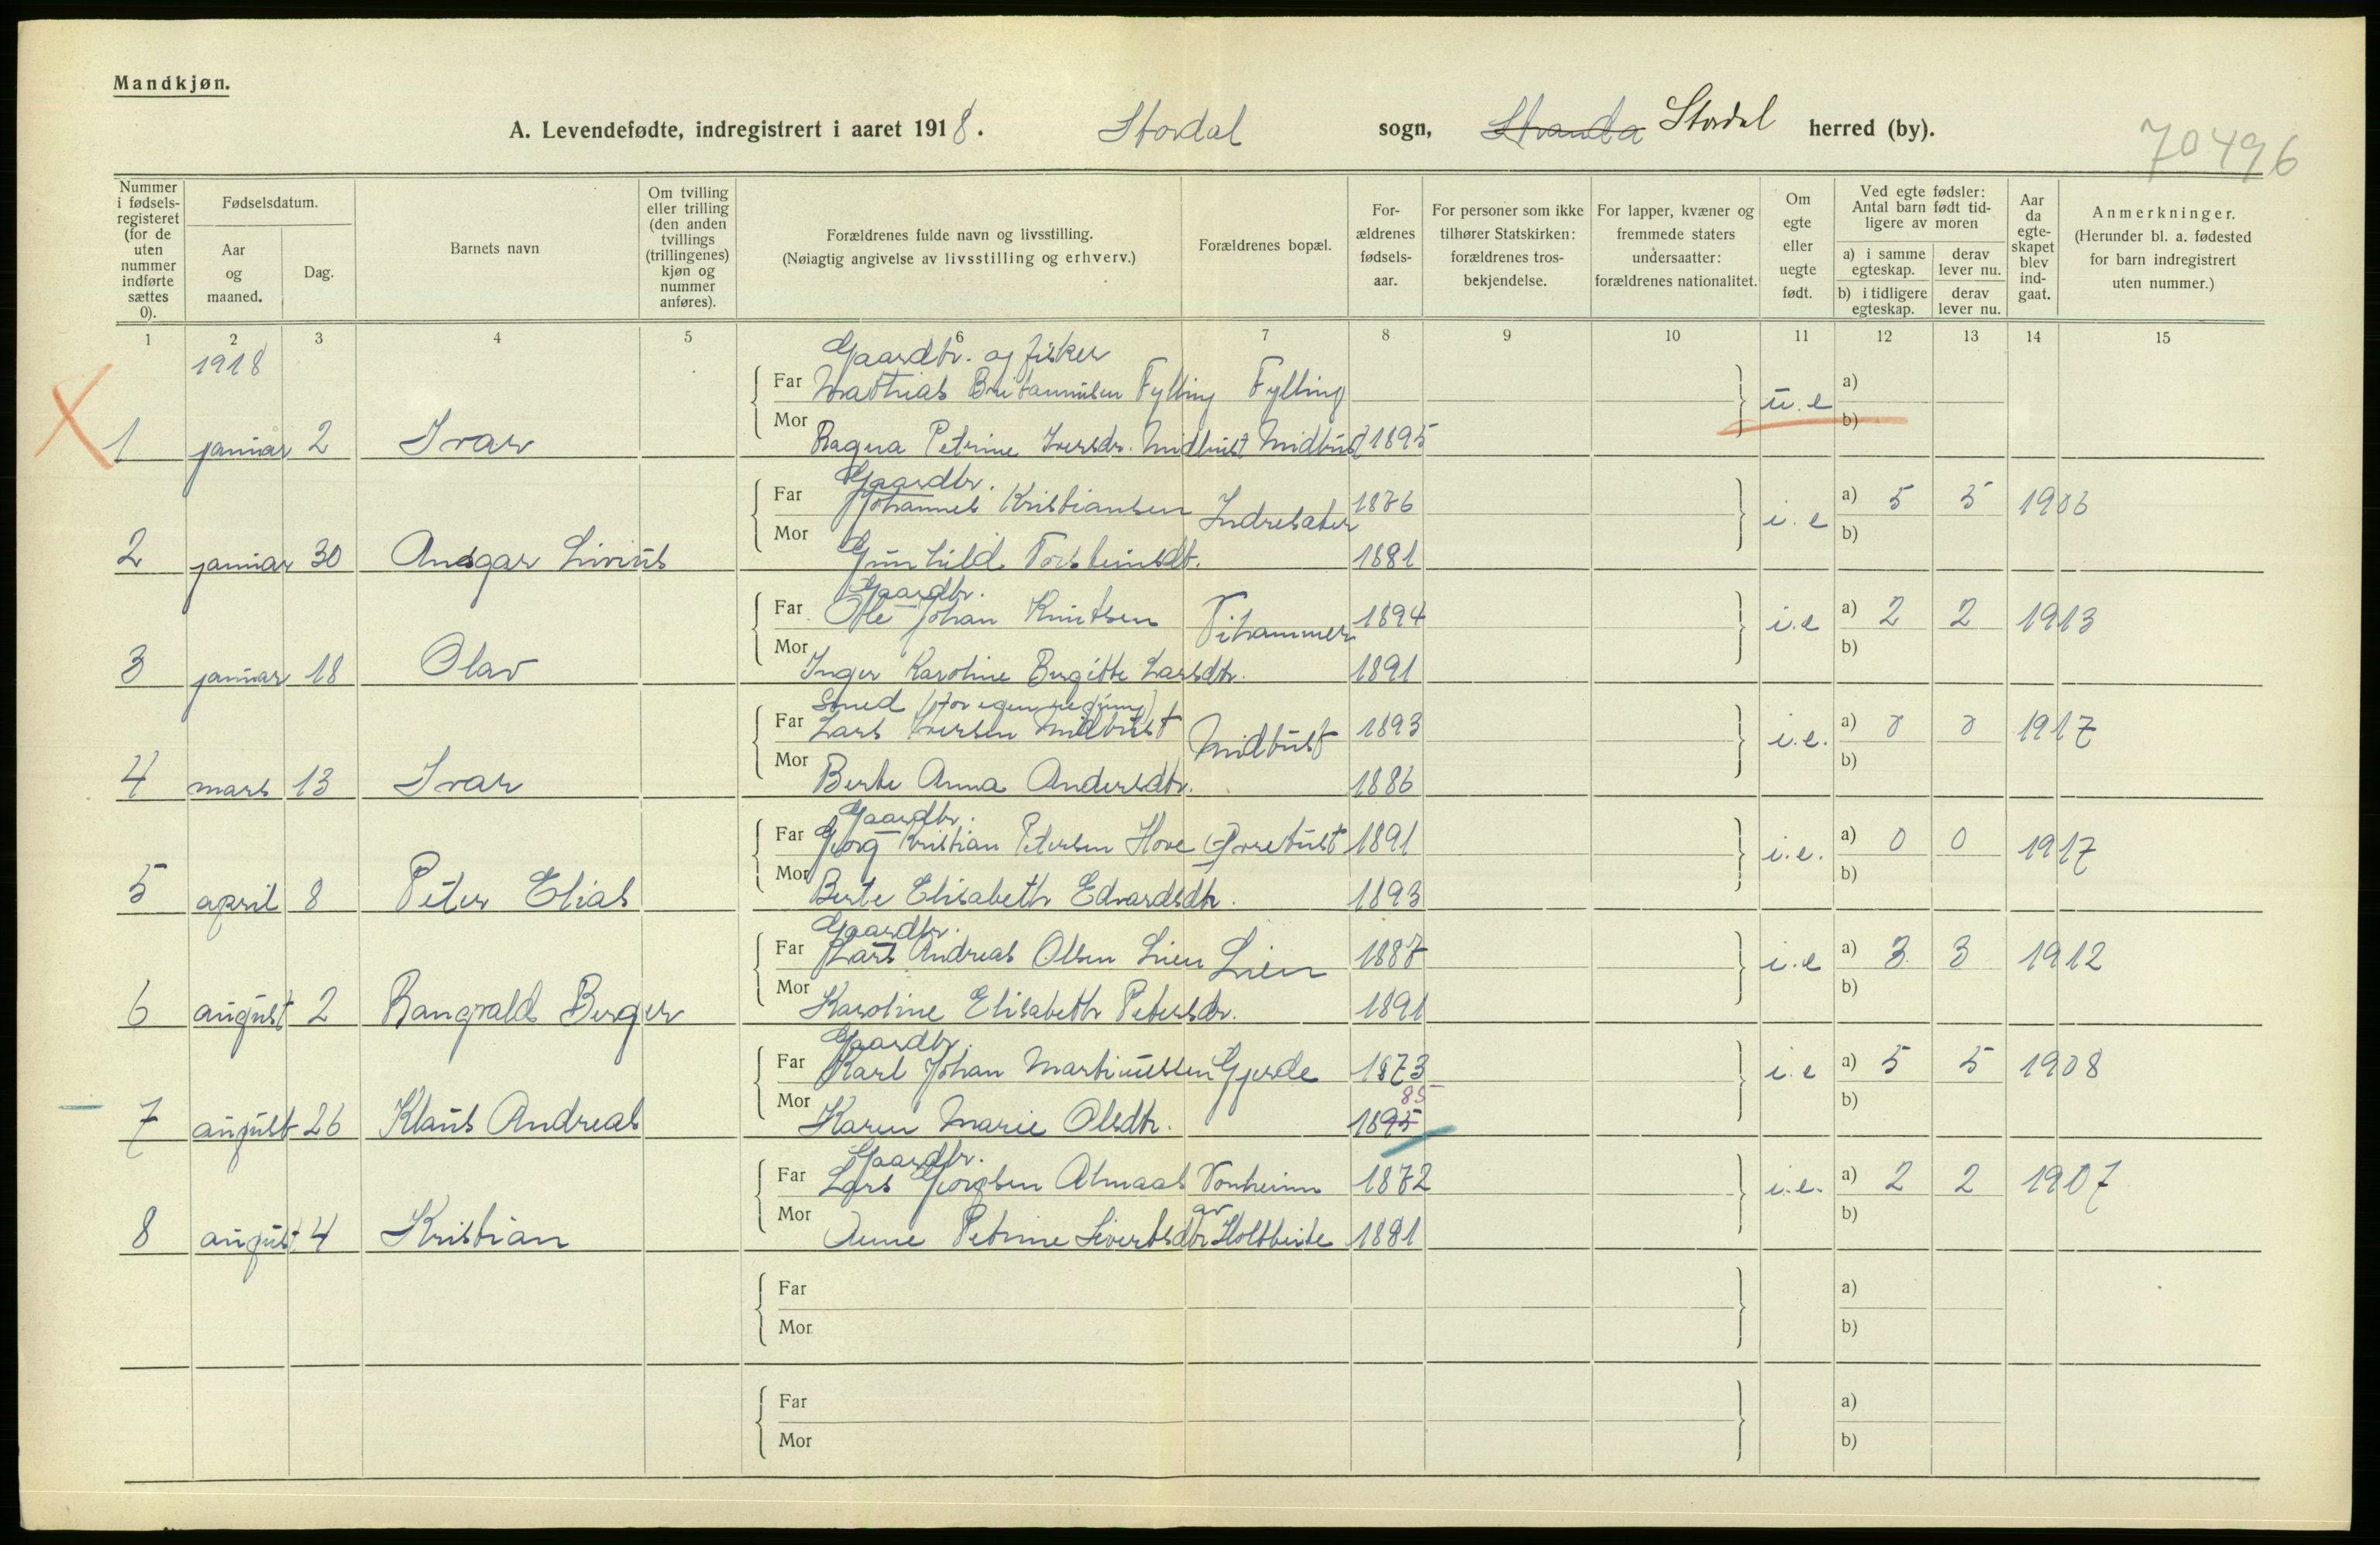 Mandkjøn.
A. Levendefødte, indregistrert i aaret 1918. Stordal sogn, Stranda Stordal herred (by).
70496
Nummer i fødselsregisteret (for de uten nummer indførte sættes 0).
Fødselsdatum.
Aar og maaned.
Dag.
Barnets navn
Om tvilling eller trilling (den anden tvillings (trillingenes) kjøn og nummer anføres).
Forældrenes fulde navn og livsstilling.
(Nøiagtig angivelse av livsstilling og erhverv.)
Forældrenes bopæl.
Forældrenes fødselsaar.
For personer som ikke tilhører Statskirken: forældrenes trosbekjendelse.
For lapper, kvæner og fremmede staters undersaatter: forældrenes nationalitet.
Om egte eller uegte født.
Ved egte fødsler: Antal barn født tidligere av moren
a) i samme egteskap.
derav lever nu.
b) i tidligere egteskap.
derav lever nu.
Aar da egteskapet blev indgaat.
Anmerkninger.
(Herunder bl. a. fødested for barn indregistrert uten nummer.)
1 2 3 4 5 6 7 8 9 10 11 12 13 14 15
1918
Gaardbr. og fisker
Far Mathias Fylling Fylling a)
u.e
Mor Ragna Petrine Iversdr. Midbust Midbust 1895 b)
1 januar 2 Ivar
Gaardbr.
Far Johannes Kristiansen Indresæter 1876 i.e a) 5 5 1906
Mor Gunhild Torsteinsdt. 1881 b)
2 januar 30 Ansgar Livius
Gaardbr.
Far Ole Johan Knutsen Vihammer 1894 i.e a) 2 2 1913
Mor Inger Karoline Birgitte Larsdtr. 1891 b)
3 januar 18 Olav
Smed (for egen regning)
Far Lars Iversen Midbust Midbust 1893 i.e. a) 0 0 1917
Mor Berte Anna Andersdtr. 1886 b)
4 mars 13 Ivar
Gaardbr.
Far Georg Kristian Petersen Hove Øvrebust 1891 i.e. a) 0 0 1917
Mor Berte Elisabeth Edvardsdtr. 1893 b)
5 april 8 Peter Elias
Gaardbr.
Far Lars Andreas Olsen Lien Lien 1887 i.e a) 3 3 1912
Mor Karoline Elisabeth Petersdr. 1891 b)
6 august 2 Rangvald Berger
Gaardbr.
Far Karl Johan Martinussen Gjerde 1873 i.e a) 5 5 1908
85
Mor Karen Marie Olsdtr. 1895 b)
7 august 26 Klaus Andreas
Gaardbr.
Far Lars Georgsen Almaas Vonheim 1872 i.e. a) 2 2 1907
av
Mor Anne Petrine Sivertsdtr. 1881 b)
8 august 4 Kristian
Far a)
Mor b)
Far a)
Mor b)